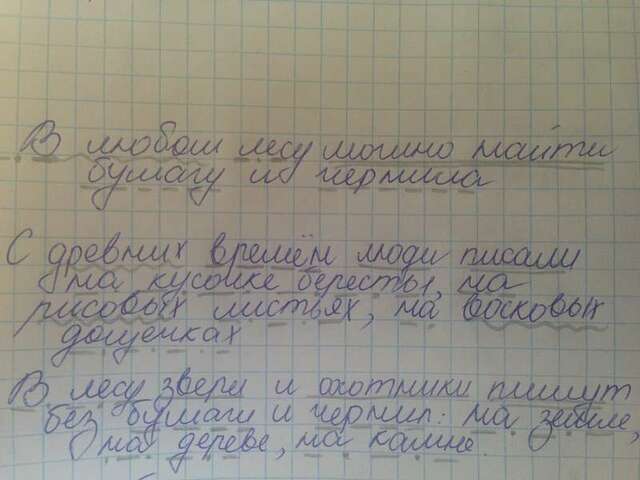 В любом лесу можно найти
бумагу и чернила
С древних времён люди писали
на кусочке бересты, на
рисовых листьях, на восковых
дощечках
В лесу звери и охотники пишут
без бумаги и чернил: на земле,
на дереве, на камне.